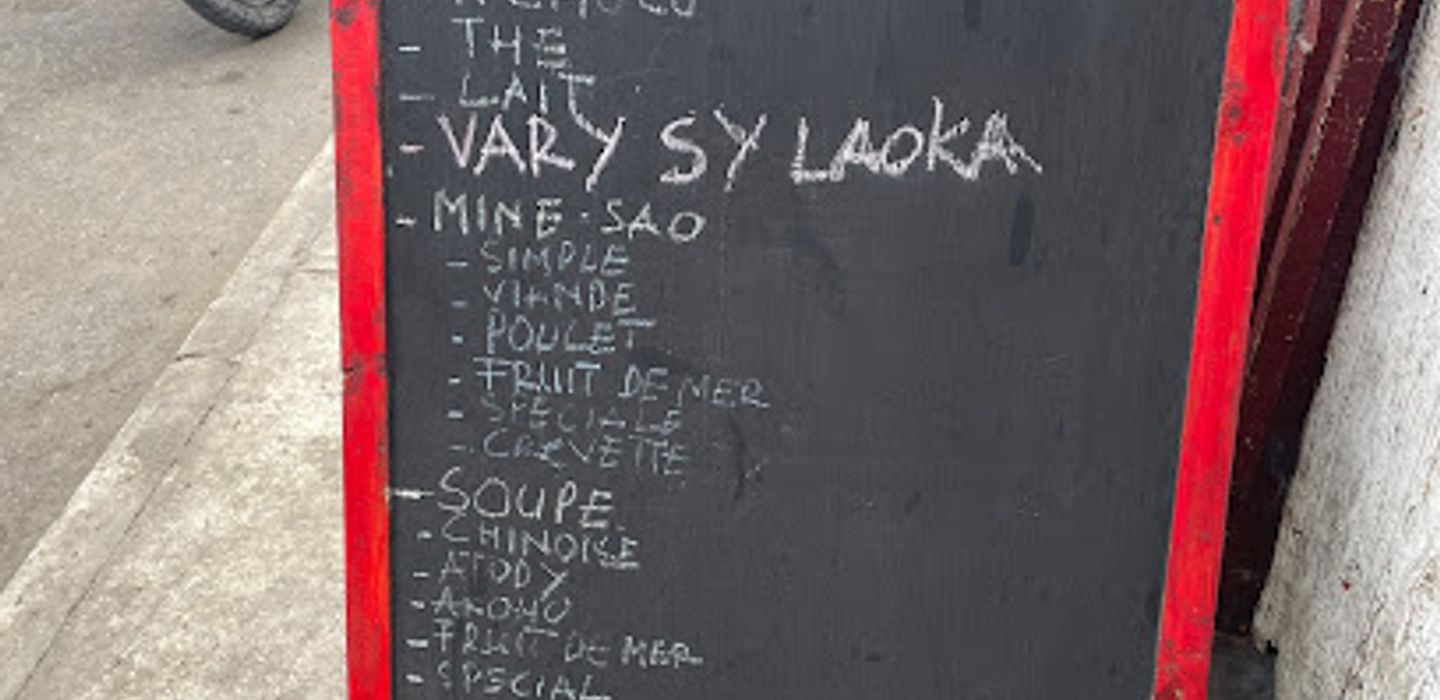 - THE
- LAIT
- VARY SY LAOKA
- MINE-SAO
- SIMPLE
- VIANDE
- POULET
- FRUIT DE MER
- SPECIALE
- CREVETTE
- SOUPE
- CHINOISE
- ATODY
- AKOHO
- FRUIT DE MER
- SPECIAL